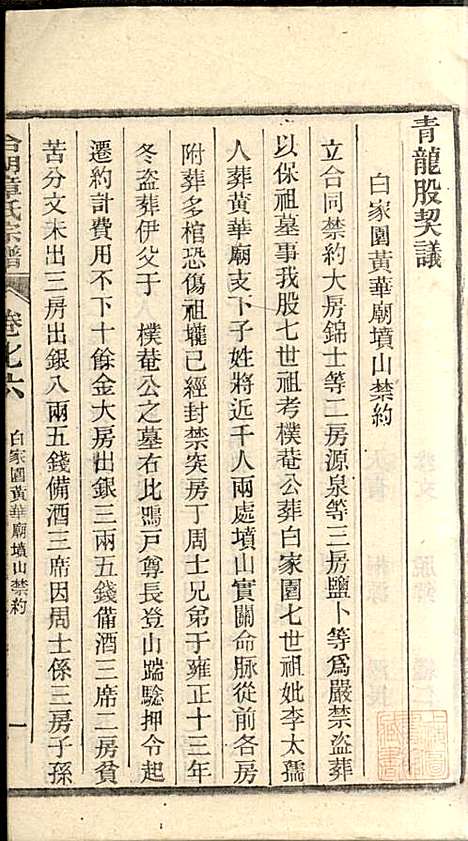 青龍股契議
白家園黃華廟墳山禁約
立合同禁約大房錦士等二房源泉等三房鹽卜等爲嚴禁盜葬
以保祖墓事我股七世祖考樸菴公葬白家園七世祖妣李太孺
人葬黃華廟支下子姓將近千人兩處墳山實關命脈從前各房
附葬多棺恐傷祖壠已經封禁突房丁周士兄弟于雍正十三年
冬盜葬伊父于 樸菴公之墓右比鳴戶尊長登山踹騐押令起
遷約計費用不下十餘金大房出銀三兩五錢備酒三席二房貧
苦分文未出三房出銀八兩五錢備酒三席因周士係三房子孫
章氏宗譜
卷七六
白家園黃華廟墳山禁約
一